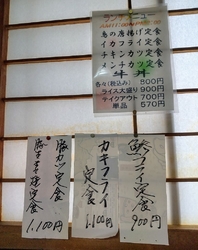 ランチメニュー
鳥の唐揚げ定食
イカフライ定食
チキンカツ定食
メンチカツ定食
牛丼
各々(税込み) 800円
ライス大盛り 900円
テイクアウト 700円
単品 570円
鯵フライ定食
900円
カキフライ
定食
1,100円
豚カツ定食
豚生姜焼定食
1,100円